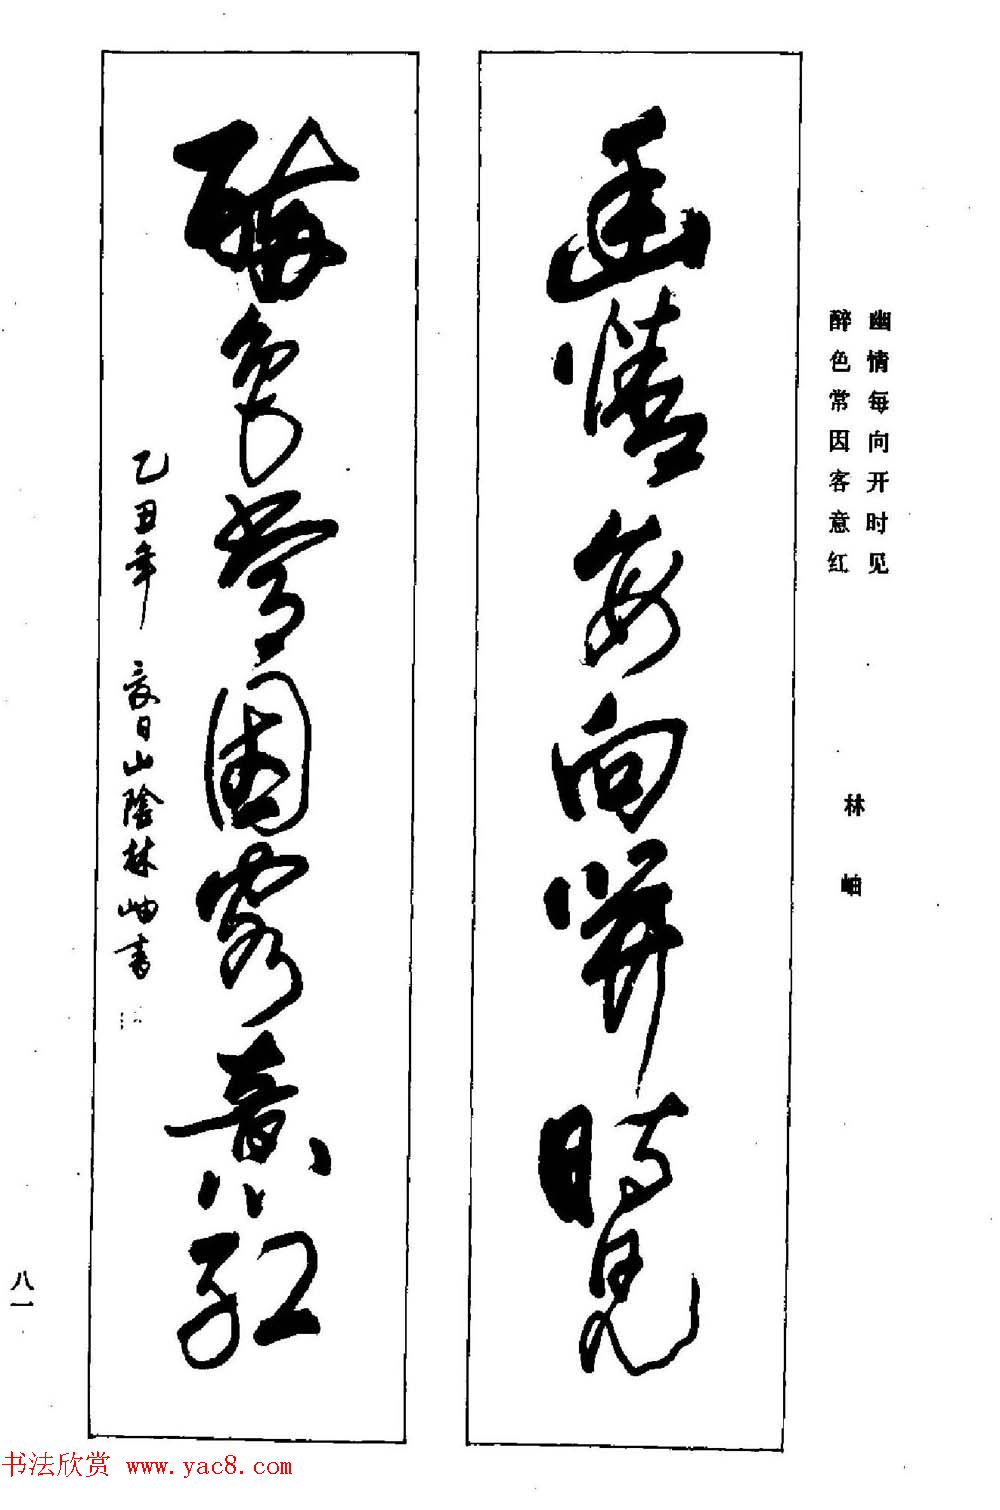 幽情每向开时见
醉色常因客意红
林岫
幽情每向開時見
酡色常因客意红
乙丑年 夏日山陰林岫書
八一
书法欣赏 www.yac8.com